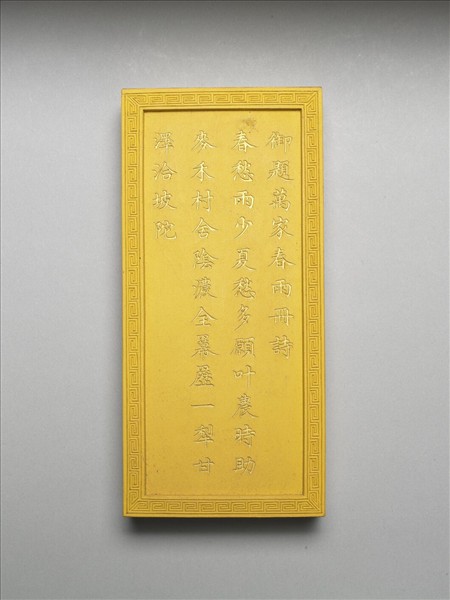 御題萬家春雨冊詩
春愁雨少夏愁多願叶農時助
麥禾村舍陰濃全羃歷一犂甘
澤洽坡陀